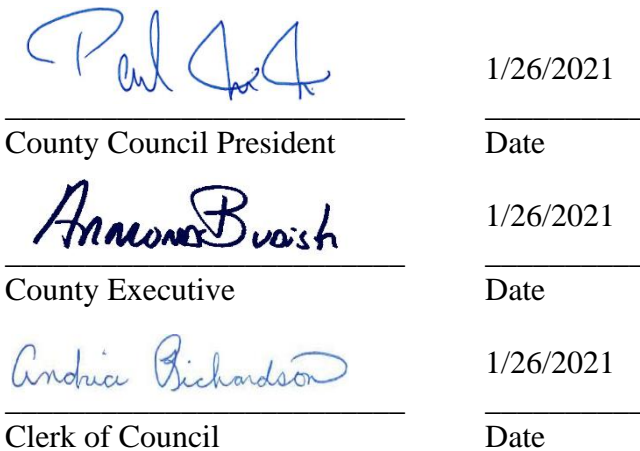 1/26/2021
County Council President Date
Armond Budish 1/26/2021
County Executive Date
Andria Richardson 1/26/2021
Clerk of Council Date